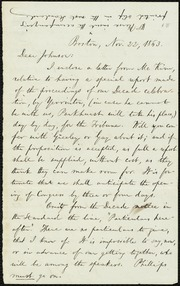 Boston, Nov. 22, 1863.
Dear Johnson:
I enclose a letter from Mr. Tilton,
relative to having a special report made
of the proceedings of our Decade celebra-
tion, by Yerrinton, (in case he cannot
be with us, Parkhurst will take his place,)
day by day, for the Tribune. Will you con-
fer with Greeley, or Gay, about it; and if
the proposition is accepted, as full a sketch
shall be supplied, without cost, as they
think they can make room for. It is for-
tunate that we shall anticipate the open-
ing of Congress by three or four days.
Omit from the Decade notice in
the Standard the line, "Particulars here-
after." There are no particulars to give,
that I know of. It is impossible to say now,
or in advance of our getting together, who
will be among the speakers. Phillips
must go on;